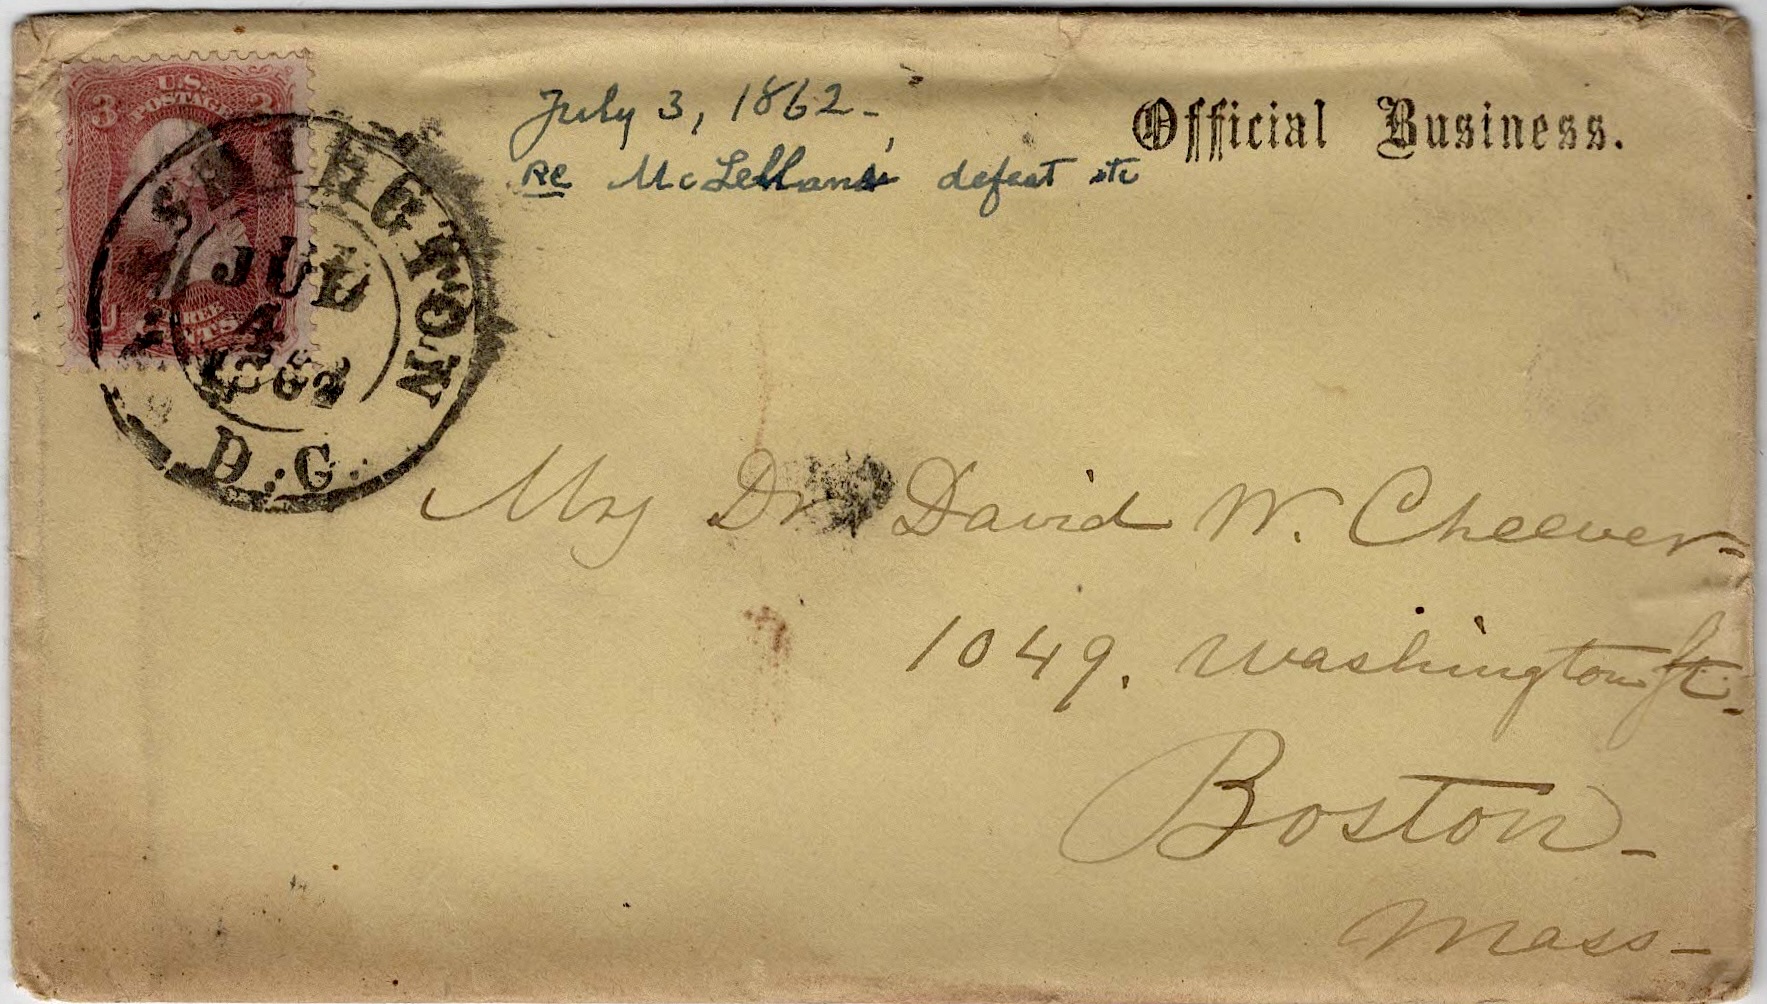 U.S.
POSTAGE
3 3
THREE
CENTS
WASHINGTON
JUL
4
1862
D.C.
July 3, 1862 -
re McLellans' defeat etc
Official Business.
Mrs Dr David W. Cheever-
1049. Washington St.
Boston -
Mass -